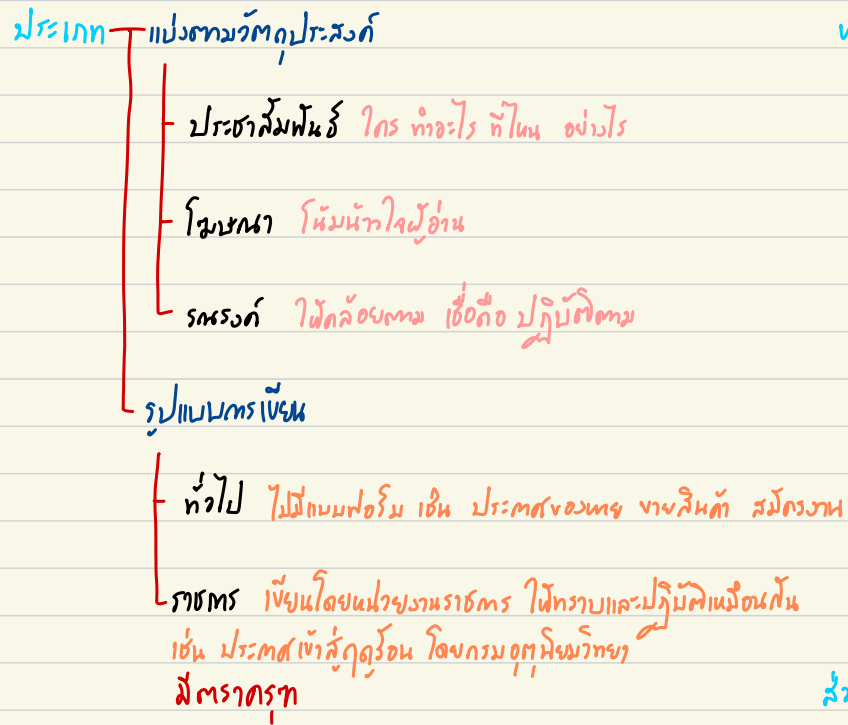 ประเภท แบ่งตามวัตถุประสงค์
ประชาสัมพันธ์ ใคร ทำอะไร ที่ไหน อย่างไร
โฆษณา โน้มน้าวใจผู้อ่าน
รณรงค์ ให้คล้อยตาม เชื่อถือ ปฏิบัติตาม
รูปแบบการเขียน
ทั่วไป ไม่มีแบบฟอร์ม เช่น ประกาศของหาย ขายสินค้า สมัครงาน
ราชการ เขียนโดยหน่วยงานราชการ ให้ทราบและปฏิบัติเหมือนกัน
เช่น ประกาศเข้าสู่ฤดูร้อน โดยกรมอุตุนิยมวิทยา
มีตราครุฑ